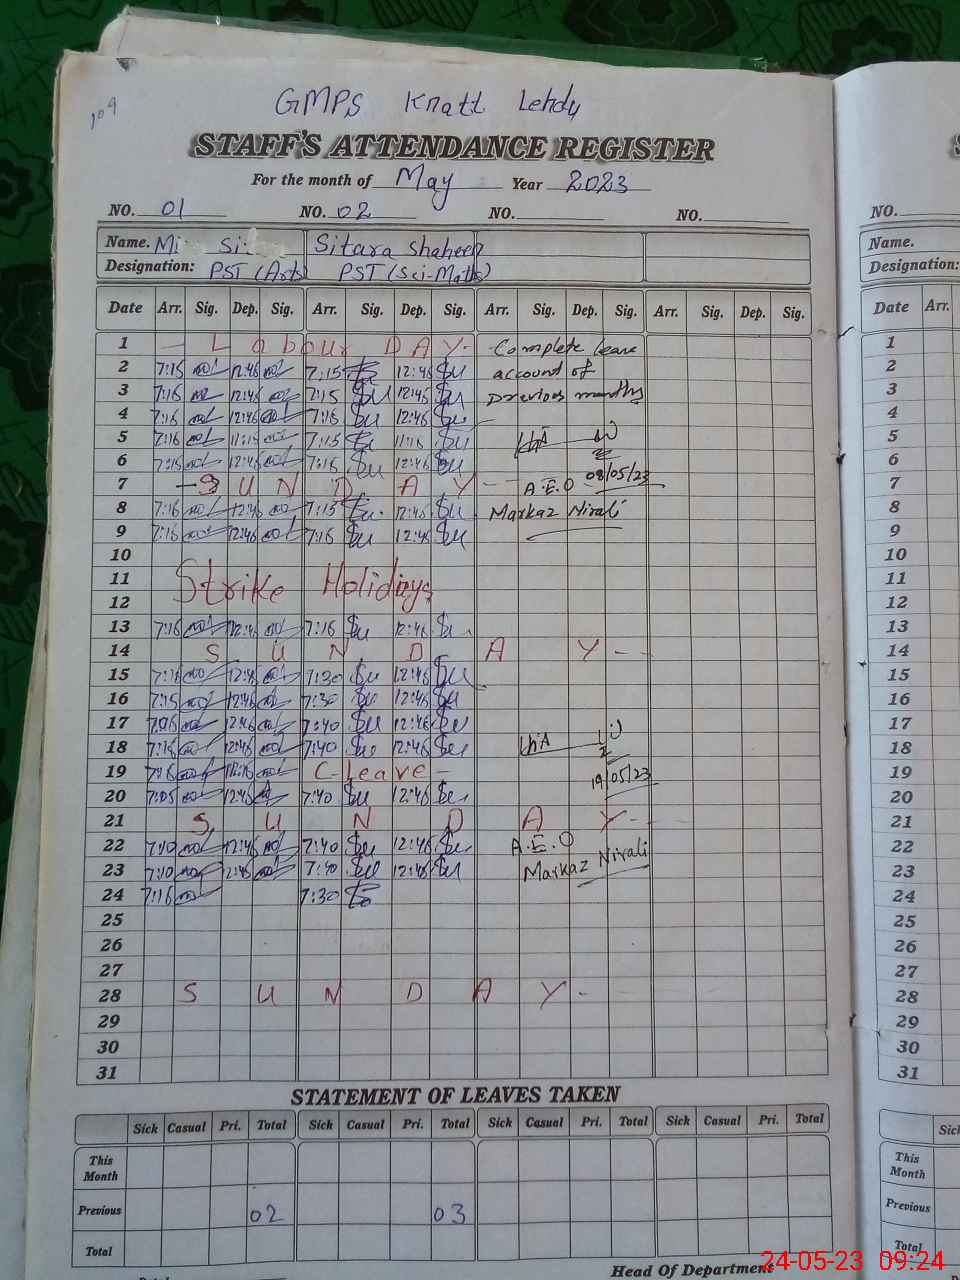 109
GMPS Knatt Lehdy
STAFF'S ATTENDANCE REGISTER
For the month of May Year 2023
NO. 01 NO. 02 NO. NO.
Name. Sitara Shaheen
Designation: PST (Arts) PST (Sci-Math)
Date Arr. Sig. Dep. Sig. Arr. Sig. Dep. Sig. Arr. Sig. Dep. Sig. Arr. Sig. Dep. Sig.
1 Labour DAY- Complete leave
2 7:15 12:45 7:15 12:45 account of
3 7:15 12:45 7:15 12:45 previous months
4 7:15 12:45 7:15 12:45
5 7:15 11:15 7:15 11:15
6 7:15 12:45 7:15 12:45 08/05/23
7 SUNDAY-- A.E.O
8 7:15 12:45 7:15 12:45 Markaz Nirali
9 7:15 12:45 7:15 12:45
10
11 Strike Holidays
12
13 7:15 12:45 7:15 12:45
14 S U N D A Y--
15 7:15 12:45 7:30 12:45
16 7:15 12:45 7:30 12:45
17 12:45 7:40 12:45
18 7:15 12:45 7:40 12:45
19 C-Leave- 19/05/23
20 7:05 12:45 7:40 12:45
21 S U N D A Y--
22 7:10 12:45 7:40 12:45 A.E.O
23 7:10 12:45 7:40 12:45 Markaz Nirali
24 7:15 7:30
25
26
27
28 S U N D A Y-
29
30
31
STATEMENT OF LEAVES TAKEN
Sick Casual Pri. Total Sick Casual Pri. Total Sick Casual Pri. Total Sick Casual Pri. Total
This Month
Previous 02 03
Total
Head Of Department
24-05-23 09:24
NO.
Name.
Designation:
Date Arr.
1
2
3
4
5
6
7
8
9
10
11
12
13
14
15
16
17
18
19
20
21
22
23
24
25
26
27
28
29
30
31
This Month
Previous
Total